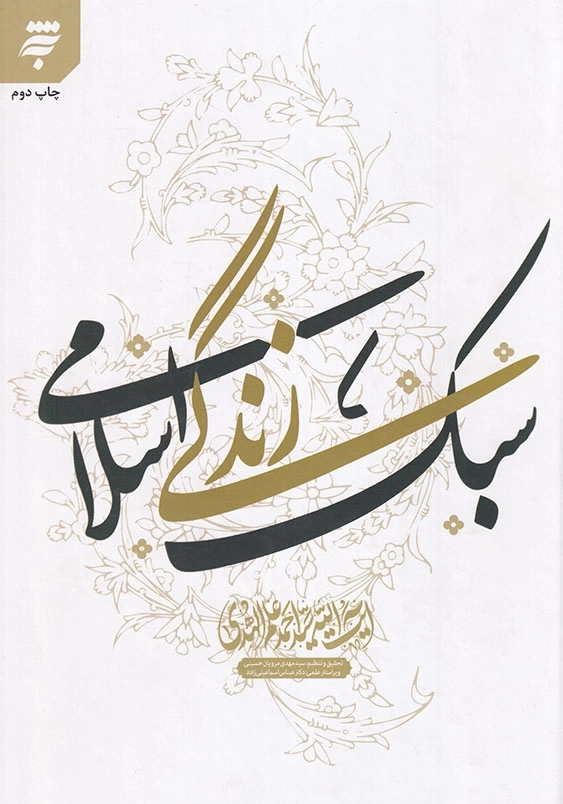 چاپ دوم
سبک زندگی اسلامی
آیت الله سید احمد علم الهدی
تحقیق و تنظیم: سید مهدی مرویان حسینی
ویراستار علمی: دکتر عباس اسماعیلی زاده